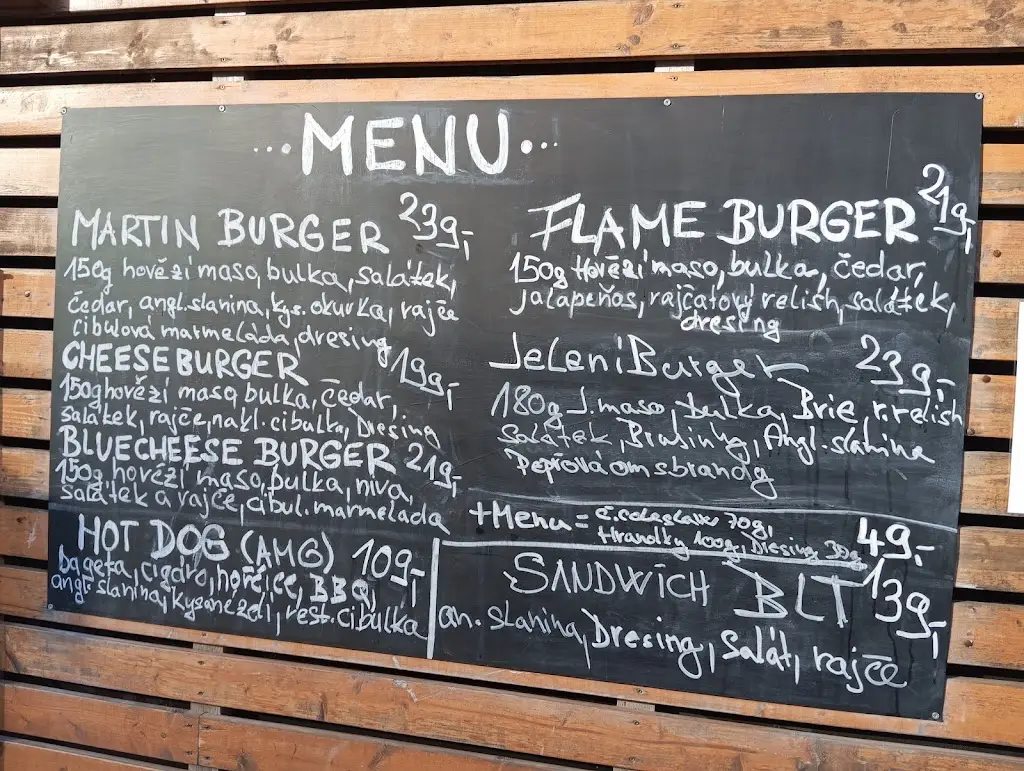 ...MENU...
MARTIN BURGER 239,-
150g hovězí maso, bulka, salátek,
čedar, angl. slanina, kys. okurka, rajče
cibulová marmeláda, dresing
CHEESEBURGER 199,-
150g hovězí maso, bulka, čedar,
salátek, rajče, nakl. cibulka, Dresing
BLUECHEESE BURGER 219,-
150g hovězí maso, bulka, niva,
salátek a rajče, cibul. marmeláda
HOT DOG (AMG) 109,-
bageta, cigáro, hořčice, BBQ,
angl. slanina, kysané zelí, rest. cibulka
FLAME BURGER 219,-
150g Hovězí maso, bulka, čedar,
jalapeños, rajčatový relish, salátek,
dresing
Jelení Burger 239,-
180g J. maso, bulka, Brie, r. relish
Salátek, Brusinky, Angl. slanina
Pepřová om s brandy
+Menu = č. coleslaw 70g,
Hranolky 100g, Dresing 30g 49,-
SANDWICH BLT 139,-
an. slanina, Dresing, Salát, rajče